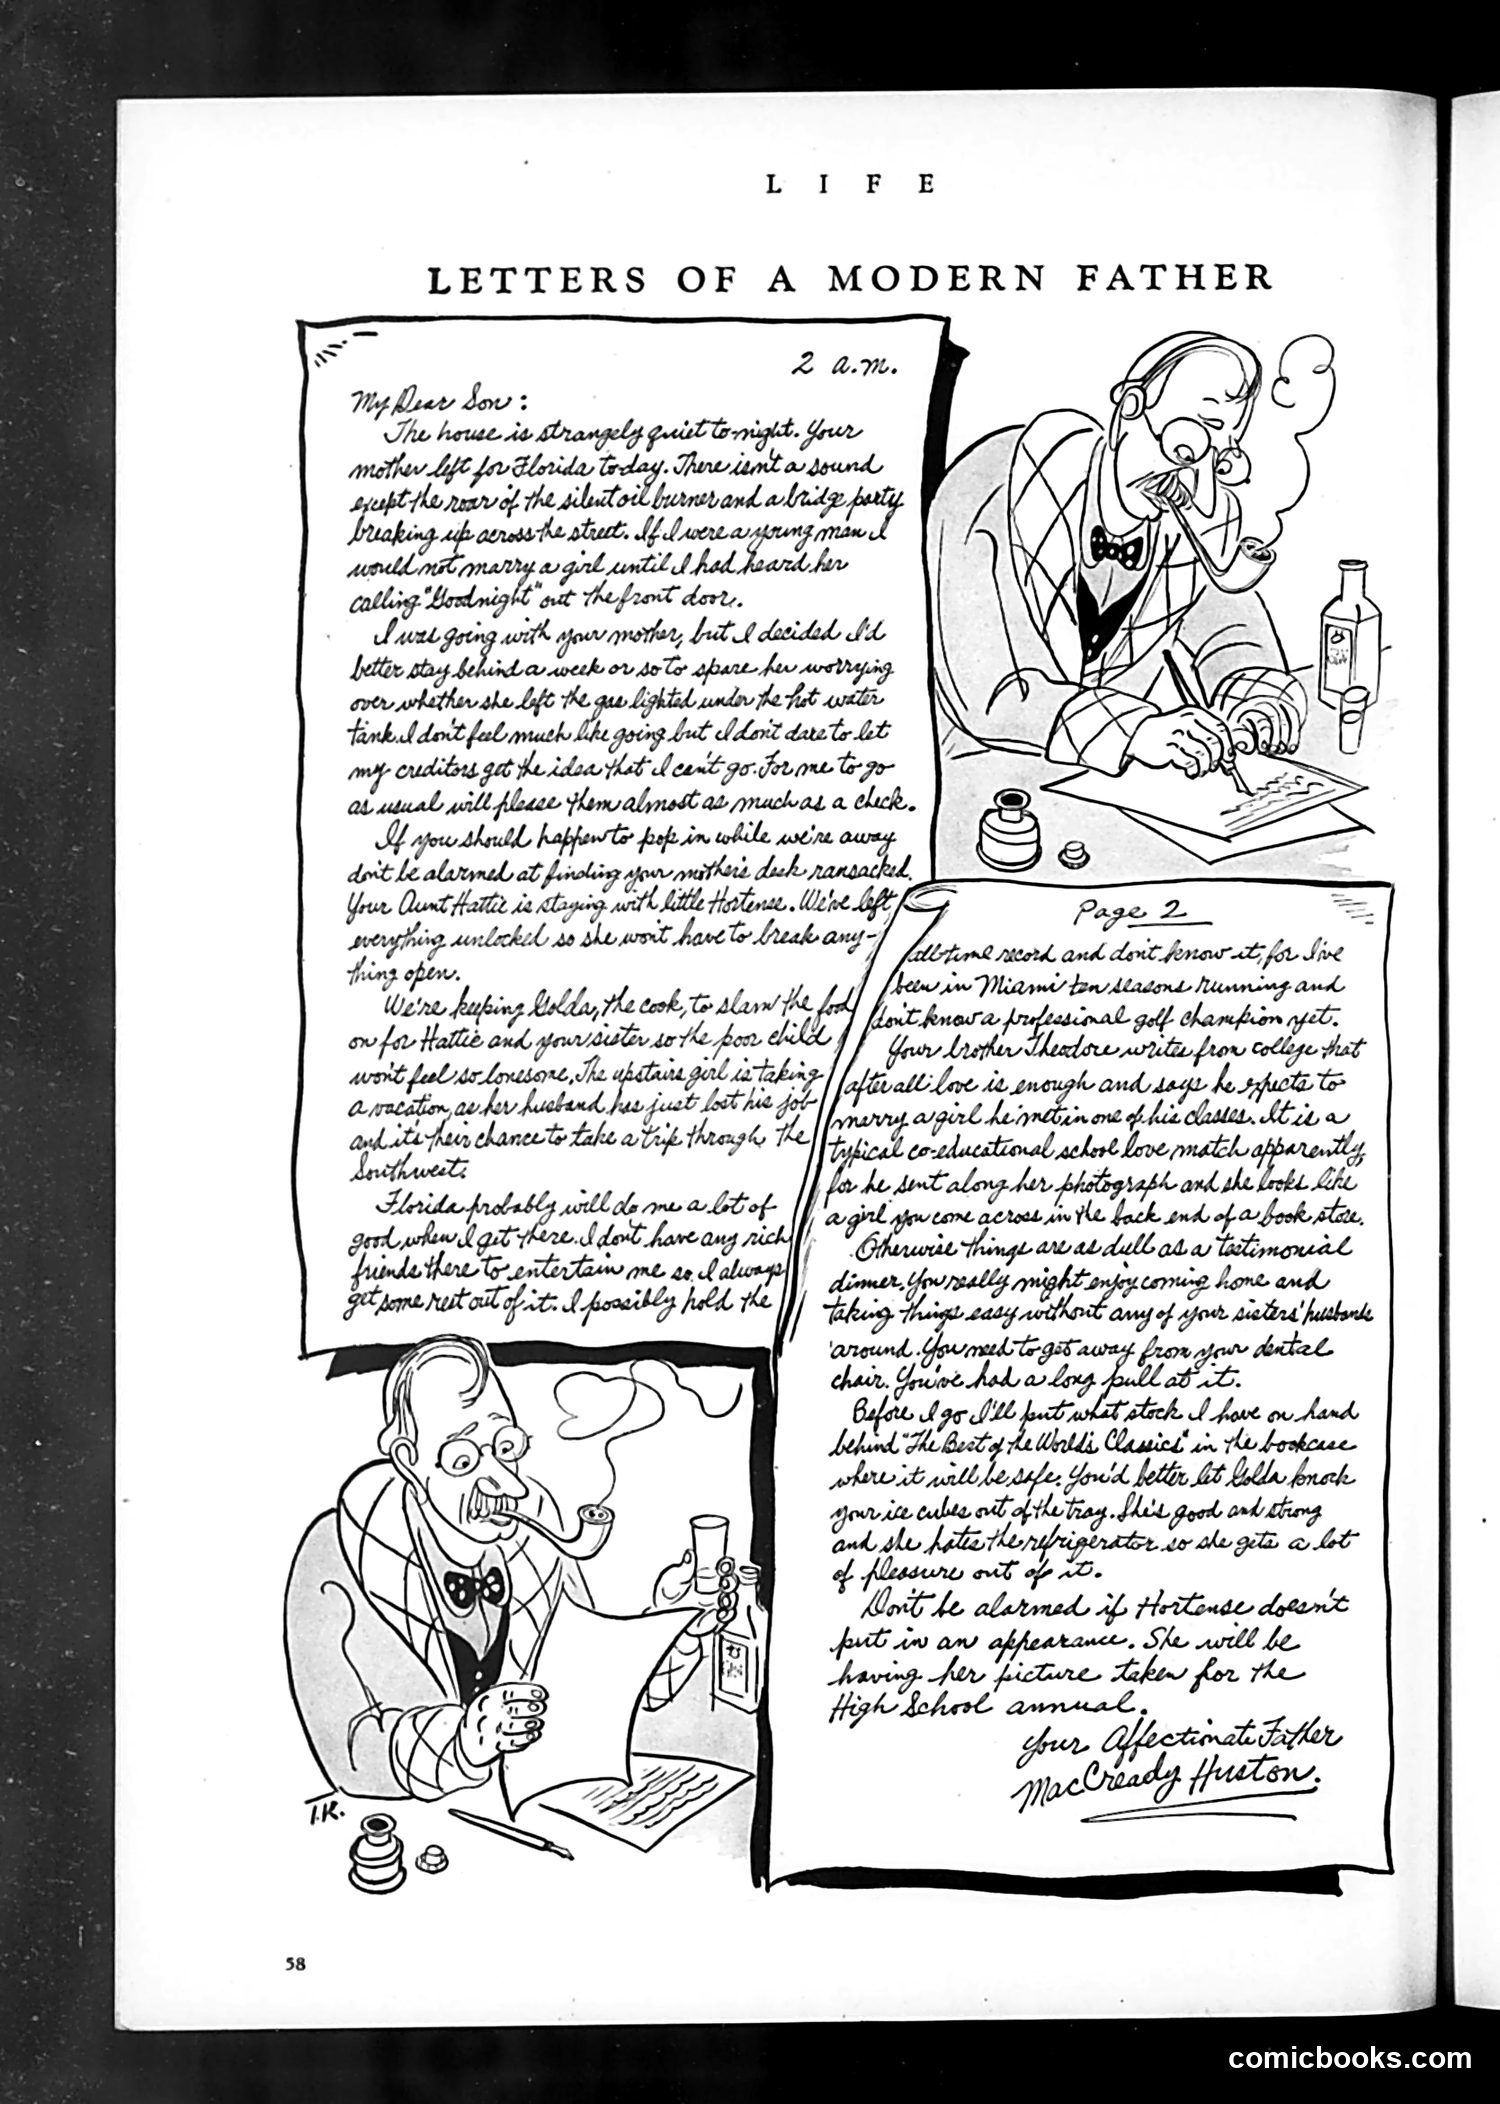 LIFE
LETTERS OF A MODERN FATHER
2 a.m.
My Dear Son:
The house is strangely quiet to-night. Your
mother left for Florida to-day. There isn't a sound
except the roar of the silent oil burner and a bridge party
breaking up across the street. If I were a young man I
would not marry a girl until I had heard her
calling "Goodnight" out the front door.
I was going with your mother, but I decided I'd
better stay behind a week or so to spare her worrying
over whether she left the gas lighted under the hot water
tank. I don't feel much like going but I don't dare to let
my creditors get the idea that I can't go. For me to go
as usual will please them almost as much as a check.
If you should happen to pop in while we're away
don't be alarmed at finding your mother's desk ransacked.
Your Aunt Hattie is staying with little Hortense. We've left
everything unlocked so she won't have to break any-
thing open.
We're keeping Golda, the cook, to slam the food
on for Hattie and your sister so the poor child
won't feel so lonesome. The upstairs girl is taking
a vacation, as her husband has just lost his job
and it's their chance to take a trip through the
Southwest.
Florida probably will do me a lot of
good when I get there. I don't have any rich
friends there to entertain me so I always
get some rest out of it. I possibly hold the
Page 2
all-time record and don't know it, for I've
been in Miami ten seasons running and
don't know a professional golf champion yet.
Your brother Theodore writes from college that
after all love is enough and says he expects to
marry a girl he met in one of his classes. It is a
typical co-educational school love match apparently,
for he sent along her photograph and she looks like
a girl you come across in the back end of a book store.
Otherwise things are as dull as a testimonial
dinner. You really might enjoy coming home and
taking things easy without any of your sisters' husbands
around. You need to get away from your dental
chair. You've had a long pull at it.
Before I go I'll put what stock I have on hand
behind "The Best of the World's Classics" in the bookcase
where it will be safe. You'd better let Golda knock
your ice cubes out of the tray. She's good and strong
and she hates the refrigerator so she gets a lot
of pleasure out of it.
Don't be alarmed if Hortense doesn't
put in an appearance. She will be
having her picture taken for the
High School annual.
Your Affectionate Father
MacCready Huston.
I.K.
58
comicbooks.com